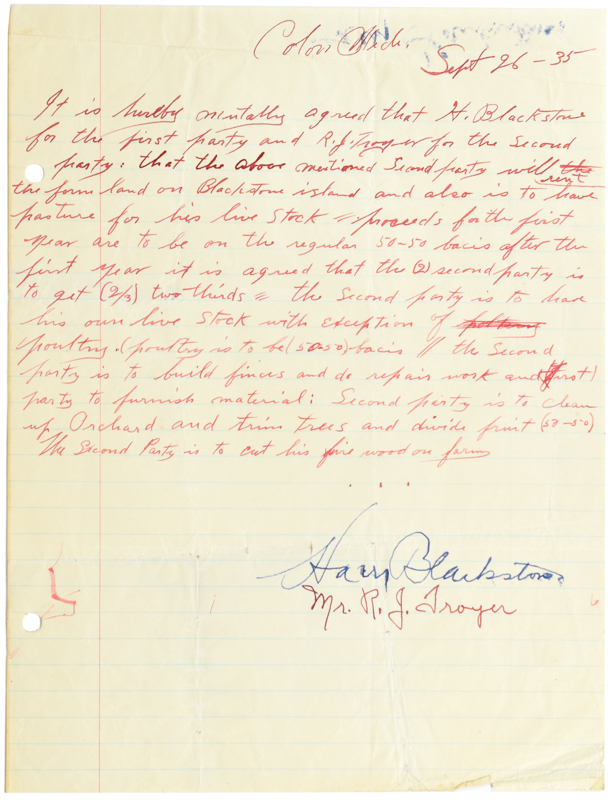 Colon Mich.
Sept 26 - 35
It is hereby mintally agreed that H. Blackstone
for the first party and R.J. Troyer for the Second
party: that the above mentioned Second party will rent
the farm land on Blackstone island and also is to have
pasture for his live Stock = proceeds for the first
year are to be on the regular 50-50 bacis after the
first year it is agreed that the (2) second party is
to get (2/3) two thirds = the Second party is to have
his own live Stock with exception of
poultry. (poultry is to be (50-50) bacis // the Second
party is to build finces and do repair work and (first)
party to furnish material: Second party is to clean
up Orchard and trim trees and divide fruit (50-50)
The Second Party is to cut his fire wood on farm
. . .
Harry Blackstone
Mr. R. J. Troyer